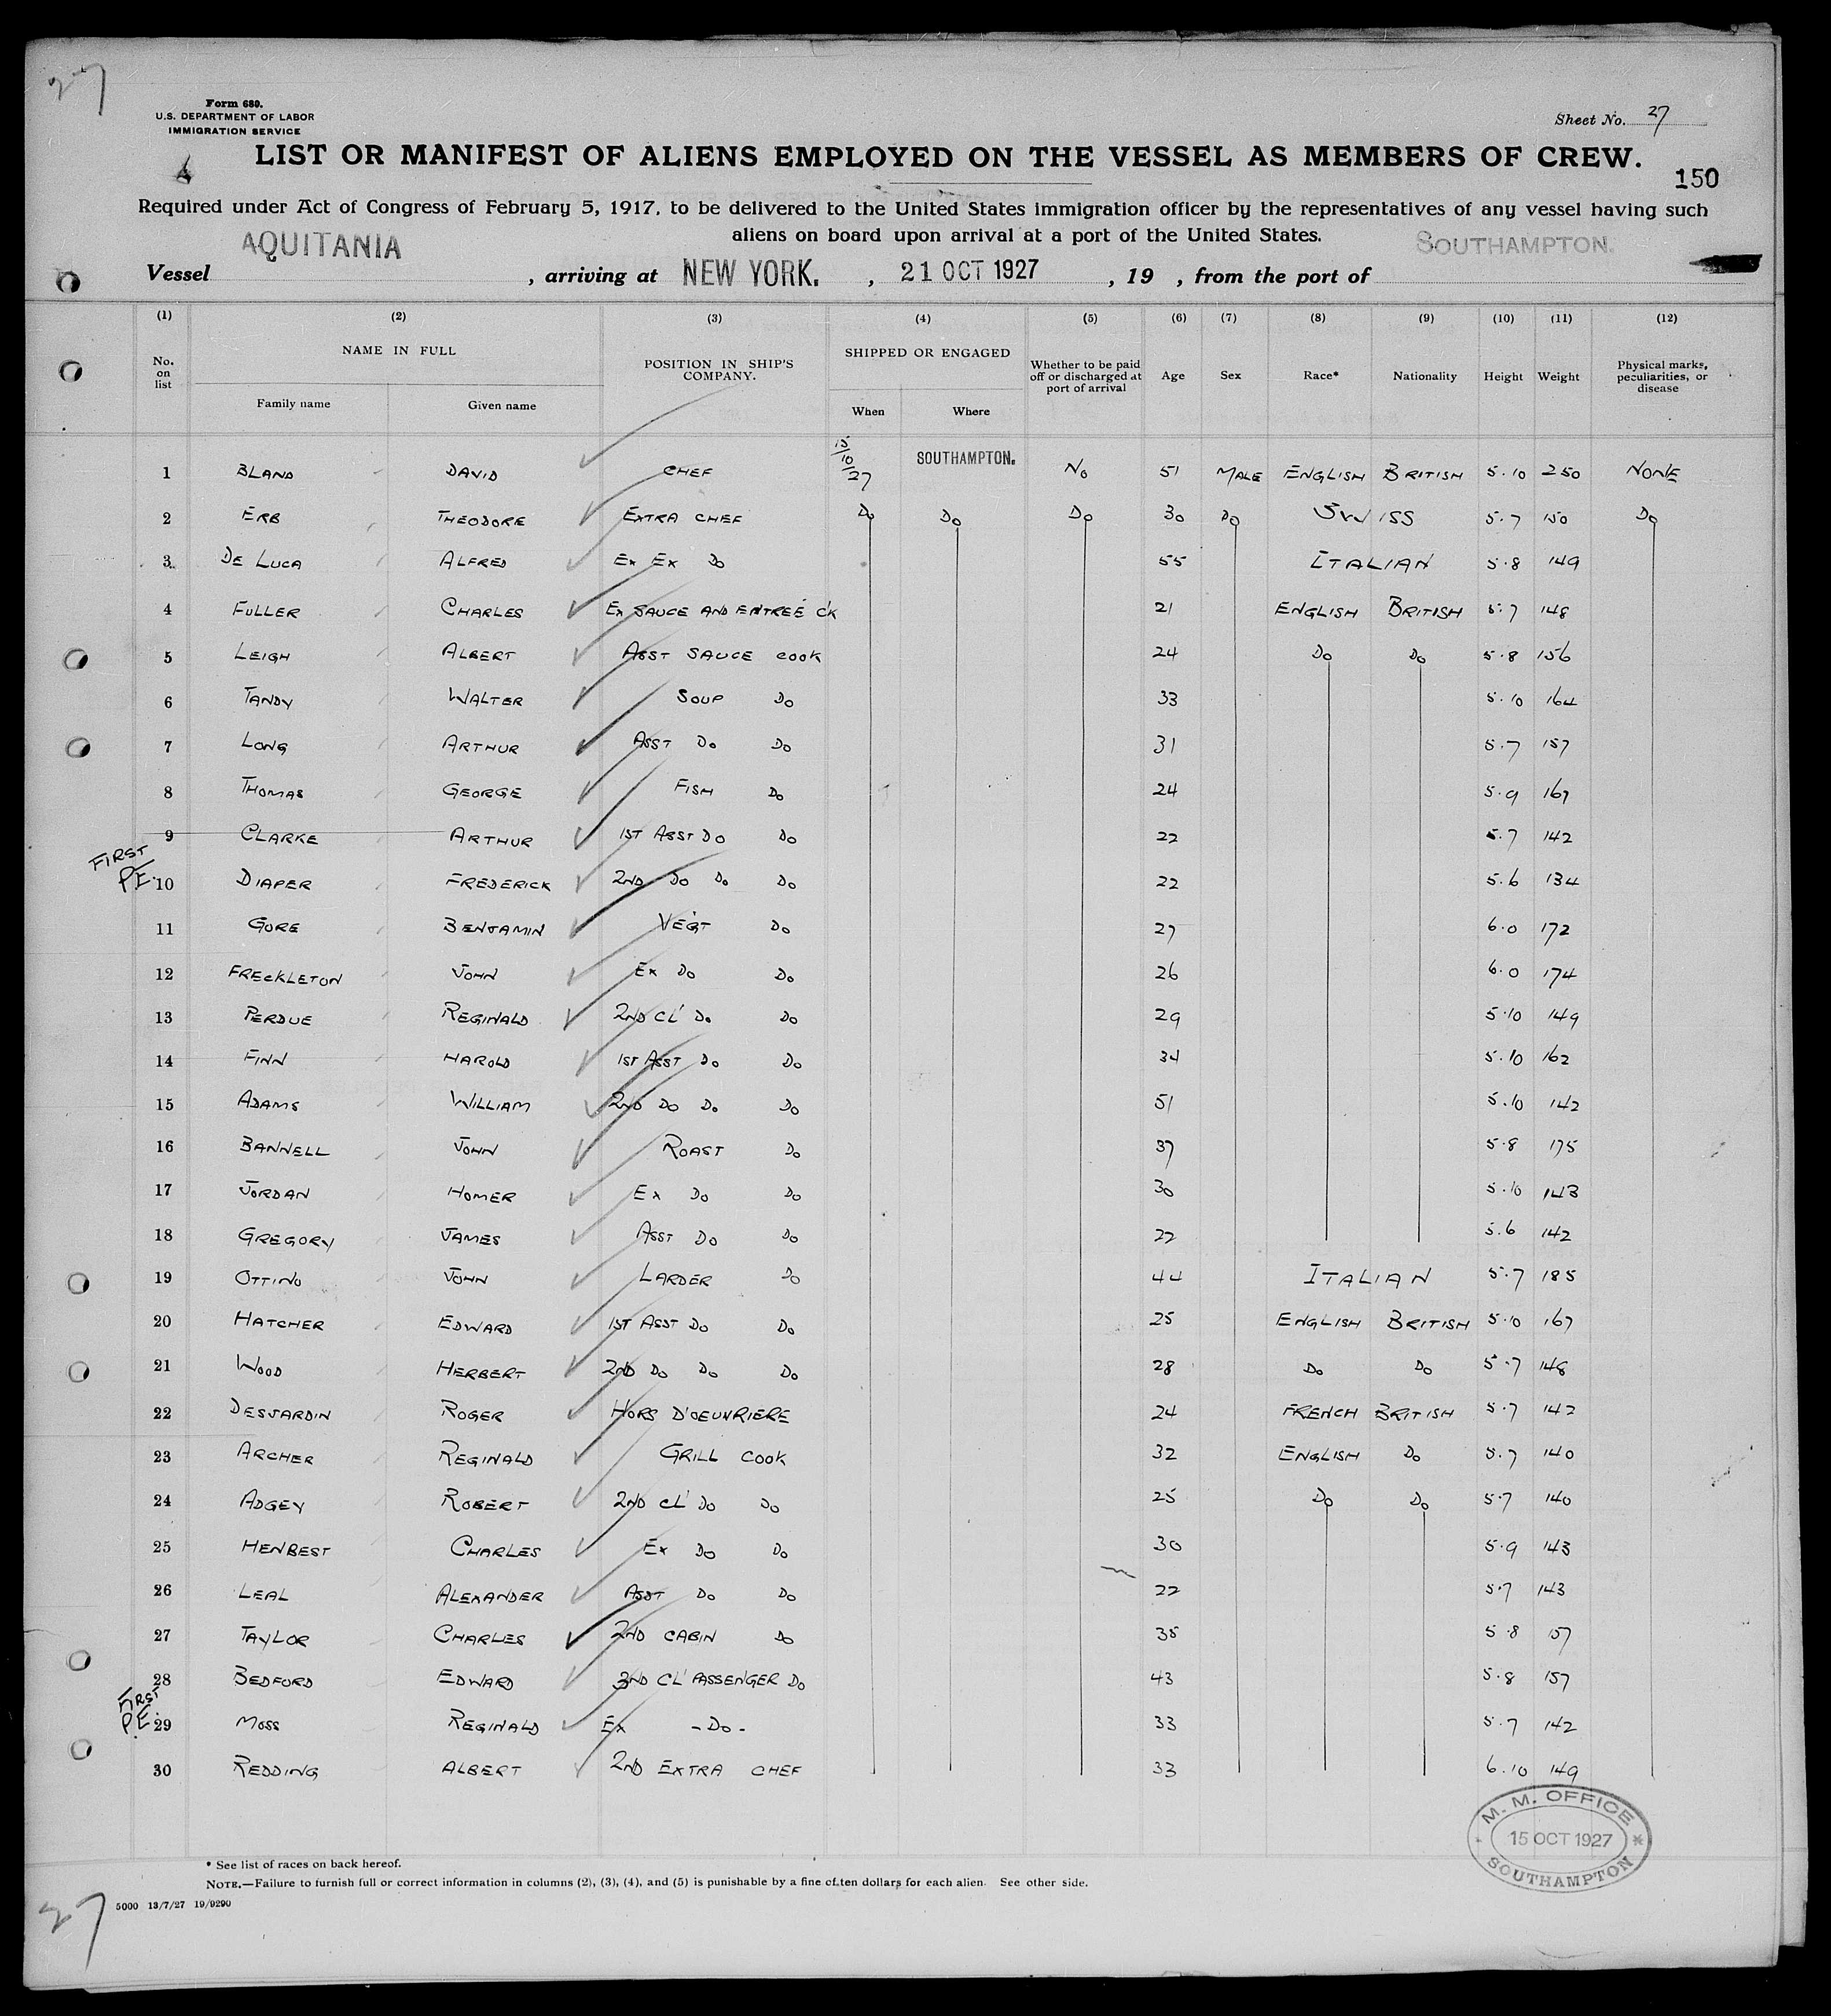 27
Form 680.
U.S. DEPARTMENT OF LABOR
IMMIGRATION SERVICE
Sheet No. 27
LIST OR MANIFEST OF ALIENS EMPLOYED ON THE VESSEL AS MEMBERS OF CREW.
150
Required under Act of Congress of February 5, 1917, to be delivered to the United States immigration officer by the representatives of any vessel having such
aliens on board upon arrival at a port of the United States.
Vessel AQUITANIA , arriving at NEW YORK. , 21 OCT 1927 , 19 , from the port of SOUTHAMPTON.
(1) (2) (3) (4) (5) (6) (7) (8) (9) (10) (11) (12)
No. on list NAME IN FULL Family name Given name POSITION IN SHIP'S COMPANY. SHIPPED OR ENGAGED When Where Whether to be paid off or discharged at port of arrival Age Sex Race* Nationality Height Weight Physical marks, peculiarities, or disease
1 BLAND DAVID CHEF 15/10/27 SOUTHAMPTON. No 51 MALE ENGLISH BRITISH 5.10 250 NONE
2 ERB THEODORE EXTRA CHEF Do Do Do 30 Do SWISS 5.7 150 Do
3 DE LUCA ALFRED EX EX Do 55 ITALIAN 5.8 149
4 FULLER CHARLES EX SAUCE AND ENTREÉ CK 21 ENGLISH BRITISH 5.7 148
5 LEIGH ALBERT ASST SAUCE COOK 24 Do Do 5.8 156
6 TANDY WALTER SOUP Do 33 5.10 164
7 LONG ARTHUR ASST Do Do 31 5.7 157
8 THOMAS GEORGE FISH Do 24 5.9 167
9 CLARKE ARTHUR 1ST ASST Do Do 22 5.7 142
FIRST P.E. 10 DIAPER FREDERICK 2ND Do Do Do 22 5.6 134
11 GORE BENJAMIN VEGT Do 27 6.0 172
12 FRECKLETON JOHN EX Do Do 26 6.0 174
13 PERDUE REGINALD 2ND CL' Do Do 29 5.10 149
14 FINN HAROLD 1ST ASST Do Do 34 5.10 162
15 ADAMS WILLIAM 2ND Do Do Do 51 5.10 142
16 BANNELL JOHN ROAST Do 37 5.8 175
17 JORDAN HOMER EX Do Do 30 5.10 143
18 GREGORY JAMES ASST Do Do 22 5.6 142
19 OTTINO JOHN LARDER Do 44 ITALIAN 5.7 185
20 HATCHER EDWARD 1ST ASST Do Do 25 ENGLISH BRITISH 5.10 167
21 WOOD HERBERT 2ND Do Do Do 28 Do Do 5.7 148
22 DESJARDIN ROGER HORS D'OEUVRIERE 24 FRENCH BRITISH 5.7 142
23 ARCHER REGINALD GRILL COOK 32 ENGLISH Do 5.7 140
24 ADGEY ROBERT 2ND CL' Do Do 25 Do Do 5.7 140
25 HENBEST CHARLES EX Do Do 30 5.9 143
26 LEAL ALEXANDER ASST Do Do 22 5.7 143
27 TAYLOR CHARLES 2ND CABIN Do 35 5.8 157
28 BEDFORD EDWARD 3RD CL' PASSENGER Do 43 5.8 157
FIRST P.E. 29 MOSS REGINALD EX - Do - 33 5.7 142
30 REDDING ALBERT 2ND EXTRA CHEF 33 6.10 149
M. M. OFFICE
15 OCT 1927
SOUTHAMPTON
* See list of races on back hereof.
NOTE.—Failure to furnish full or correct information in columns (2), (3), (4), and (5) is punishable by a fine of ten dollars for each alien. See other side.
5000 13/7/27 19/9290
27